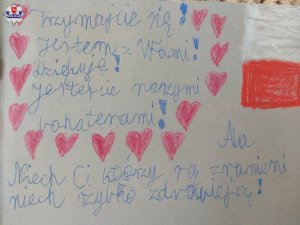 Trzymajcie się!
Jestem z Wami!
Dziękuję!
Jesteście naszymi
bohaterami!
Niech Ci którzy są zranieni
niech szybko zdrowieją!